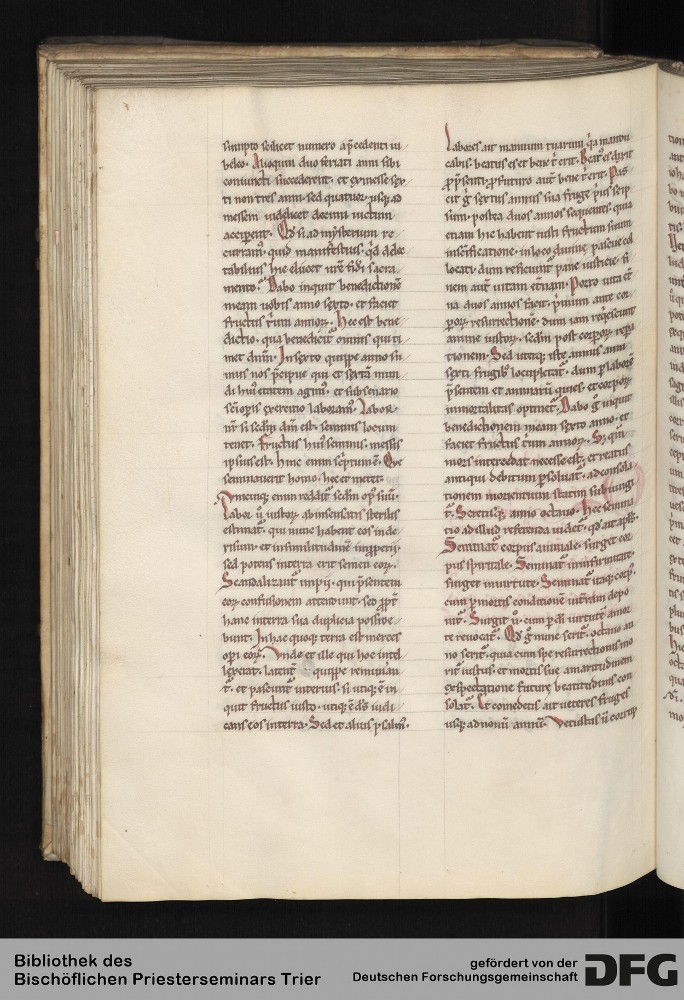 sumpto scilicet numero a p̄cedenti iu
beleo. Alioquin duo feriati anni sibi
coniuncti succederent. et ex messe sex
ti non tres anni. sed quatuor usq; ad
messem uidelicet decimi uictum
acciperent. Qd si ad mysterium re
curram᷒. quid manifestius. qd a doc
tabilius hic elucet nr̄e fidei sacra
mento. Dabo inquit benedictionē
meam uobis anno sexto. et faciet
fructus trium annoꝝ. Hec est bene
dictio. qua benedicit᷒ omnis qui ti
met dnm̄. In sexto quippe anno su
mus nos p̄cipue qui et sextā mun
di hui᷒ etatem agim᷒. et sub senario
exercitio laboram᷒. Labor
nr̄ si scd̄m dm̄ est. seminis locum
tenet. Fructus hui᷒ seminis. messis
ipsius est. hinc enim scriptum ē. Que
seminauerit homo. hec et metet.
Vnicuiq; enim reddit᷒ scd̄m op᷒ suū.
Labor u̇ iustoꝝ ab insensatis sterilis
estimat᷒. qui nunc habent eos in de
risum. et in similitudinē improperii.
sed potens in terra erit semen eoꝝ.
Scandalizant᷒ impii. qui p̄sentem
eoꝝ confusionem attendunt. sed ꝓpt᷒
hanc in terra sua duplicia posside
bunt. In hac quoq; terra est merces
op̄i eoꝝ. Vnde et ille qui hoc intel
lexerat. latent᷒ quippe remunerant᷒
t᷒. et pascunt᷒ interius. si utiq; ē in
quit fructus iusto. utiq; ē ds̄ iudi
cans eos in terra. Sed et alius psalm᷒.
Labores ait manuum tuarum. q̇a mandu
cabis. beatus es et bene t̄ erit. Beat᷒ es dixit
ꝓp̄senti. ꝓ futuro aut̄ bene t̄ erit. Fa
cit ḡ sextus annus sua fruge p̄us seip
sum. postea duos annos sequentes. quia
etiam hic habent iusti fructum suum
in sc̄ificatione. in loco diuine pascue col
locati. dum reficiunt᷒ pane iusticie. fi
nem aut̄ uitam et̄nam. Porro uita et̄
na duos annos facit. p̄mum ante cor
poꝝ resurrectionē. dum iam requiescunt
anime iustoꝝ. scd̄m post corpoꝝ repa
tionem. Sed utiq; iste annus anni
sexti frugib᷒ locupletat᷒. dum p̱ laborē
p̄sentem et animarū quies. et corpoꝝ
immortalitas optinet᷒. Dabo ḡ inquit
benedictionem meam sexto anno. et
faciet fructus trium annoꝝ. Sꝫ qm̄
mors intercedat necesse est. et reatus
antiqui debitum p̱soluat᷒. ad consola
tionem morientium statim subiungi
t᷒. Seretisq; anno octauo. Hec semina
tio ad illud referenda uidet᷒. qd ait apl̄s.
Seminat᷒ corpus animale. surget cor
pus spiritale. Seminat᷒ in infirmitate.
surget in uirtute. Seminat᷒ itaq; corp᷒.
cum p̱ mortis conditionē in t̄ram depo
nit᷒. Surgit u̇. cum p̱ dei uirtutē a mor
te reuocat᷒. Qd ḡ nunc serit᷒. octauo an
no serit᷒. quia cum spe resurrectionis mo
rit᷒ iustus. et mortis sue amaritudinem
expectatione future beatitudinis con
solat᷒. Et comedetis ait ueteres fruges
usq; ad nonū annū. Vetustas u̇ corrup
Bibliothek des
Bischöflichen Priesterseminars Trier
gefördert von der
Deutschen Forschungsgemeinschaft
DFG